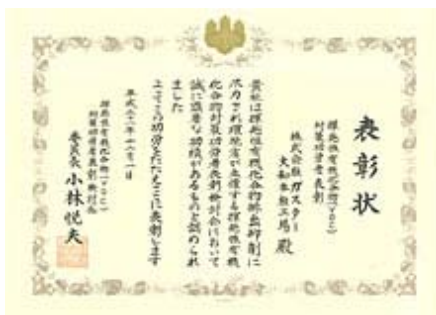 表彰状
揮発性有機化合物(VOC)
対策功労者表彰
株式会社ガスター
大和本社工場 殿
貴社は揮発性有機化合物排出抑制に
尽力され環境省が主催する揮発性有機
化合物対策功労者表彰検討会において
誠に顕著な功績があるものと認められ
ました
よってこの功労をたたえここに表彰します
平成二十一年十二月一日
揮発性有機化合物(VOC)
対策功労者表彰検討会
委員長 小林悦夫